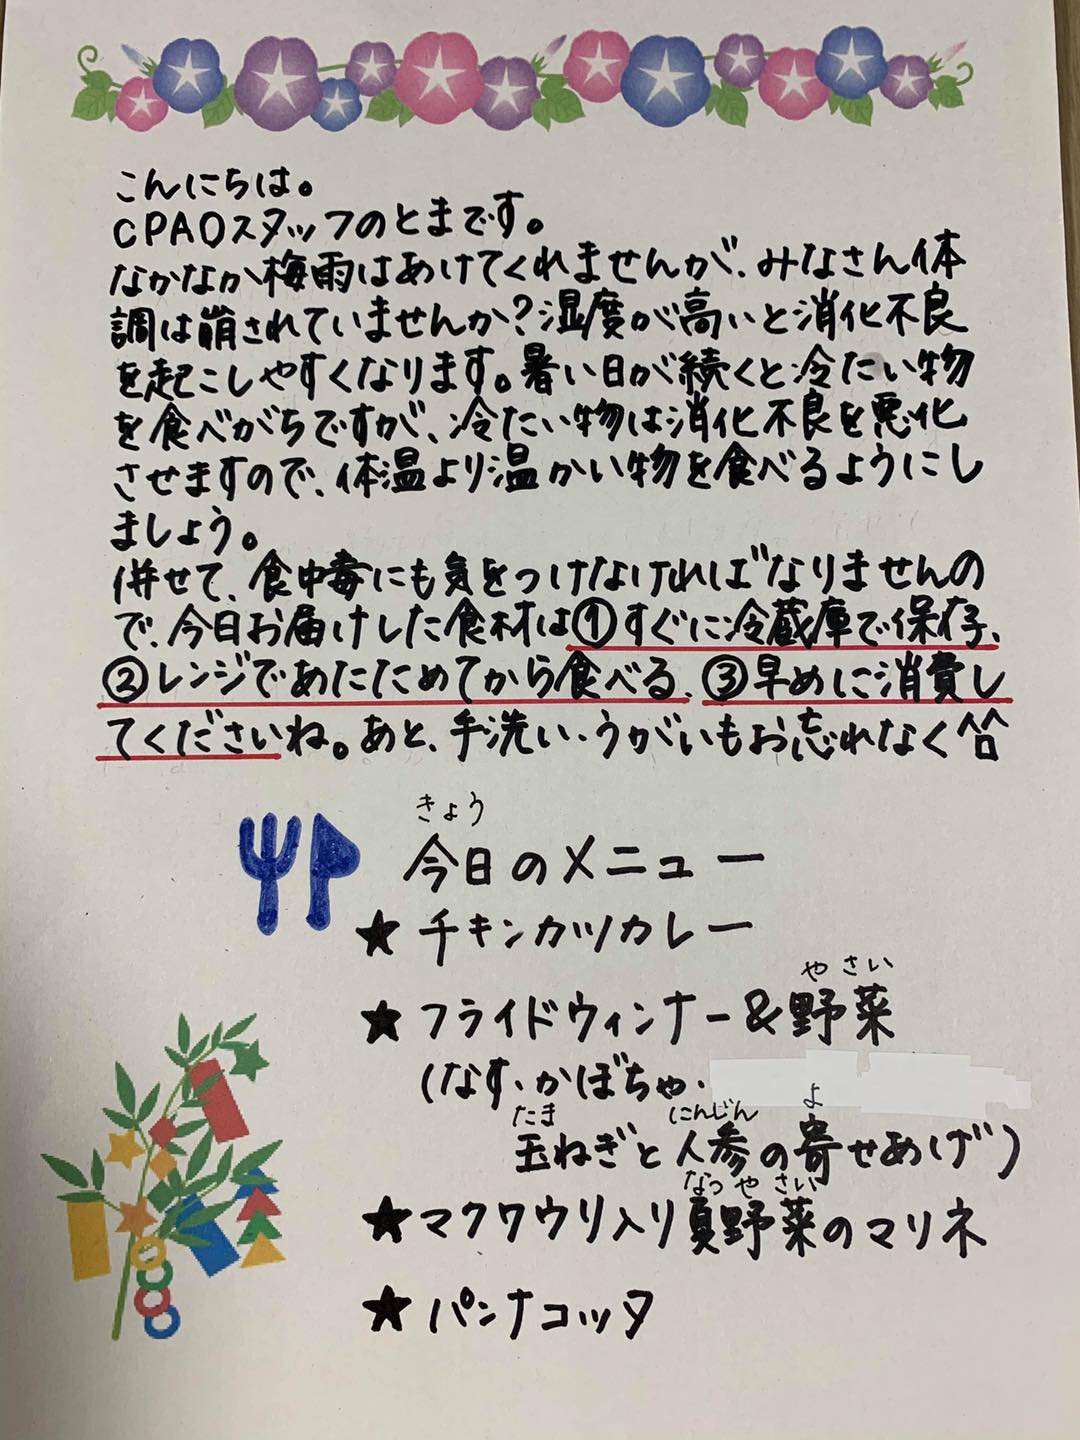 こんにちは。
CPAOスタッフのとまです。
なかなか梅雨はあけてくれませんが、みなさん体
調は崩されていませんか?湿度が高いと消化不良
を起こしやすくなります。暑い日が続くと冷たい物
を食べがちですが、冷たい物は消化不良を悪化
させますので、体温より温かい物を食べるようにし
ましょう。
併せて、食中毒にも気をつけなければなりませんの
で、今日お届けした食材は①すぐに冷蔵庫で保存、
②レンジであたためてから食べる、③早めに消費し
てくださいね。あと、手洗い・うがいもお忘れなく
きょう
今日のメニュー
★チキンカツカレー
やさい
★フライドウィンナー&野菜
(なす・かぼちゃ・
たま にんじん よ
玉ねぎと人参の寄せあげ)
なつやさい
★マクワウリ入り夏野菜のマリネ
★パンナコッタ